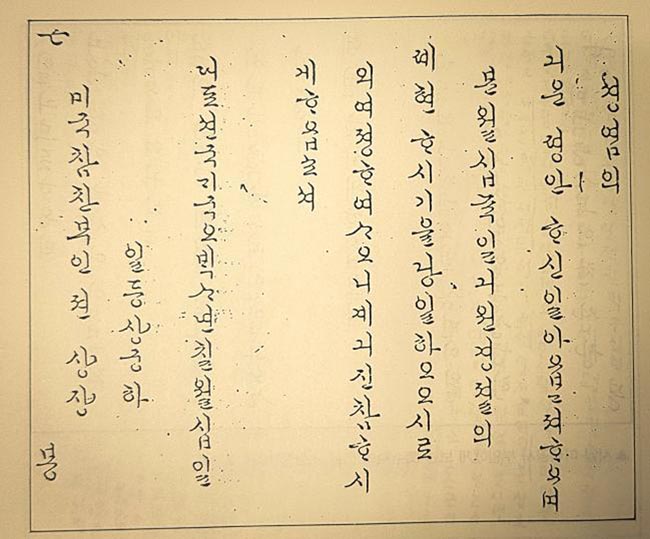 청염의
긔운 평안 ᄒᆞ신일아옵고져ᄒᆞ오며
본월십뉵일긔원경졀의
폐현 ᄒᆞ시기을당일하오오시로
외여졍ᄒᆞ여ᄉᆞ오니계긔진참ᄒᆞ시
게ᄒᆞ옵쇼셔
대죠션국ᄀᆡ국오ᄇᆡᆨᄉᆞ년칠월십일
일등상궁하
미국참찬부인젼 샹장
근
봉